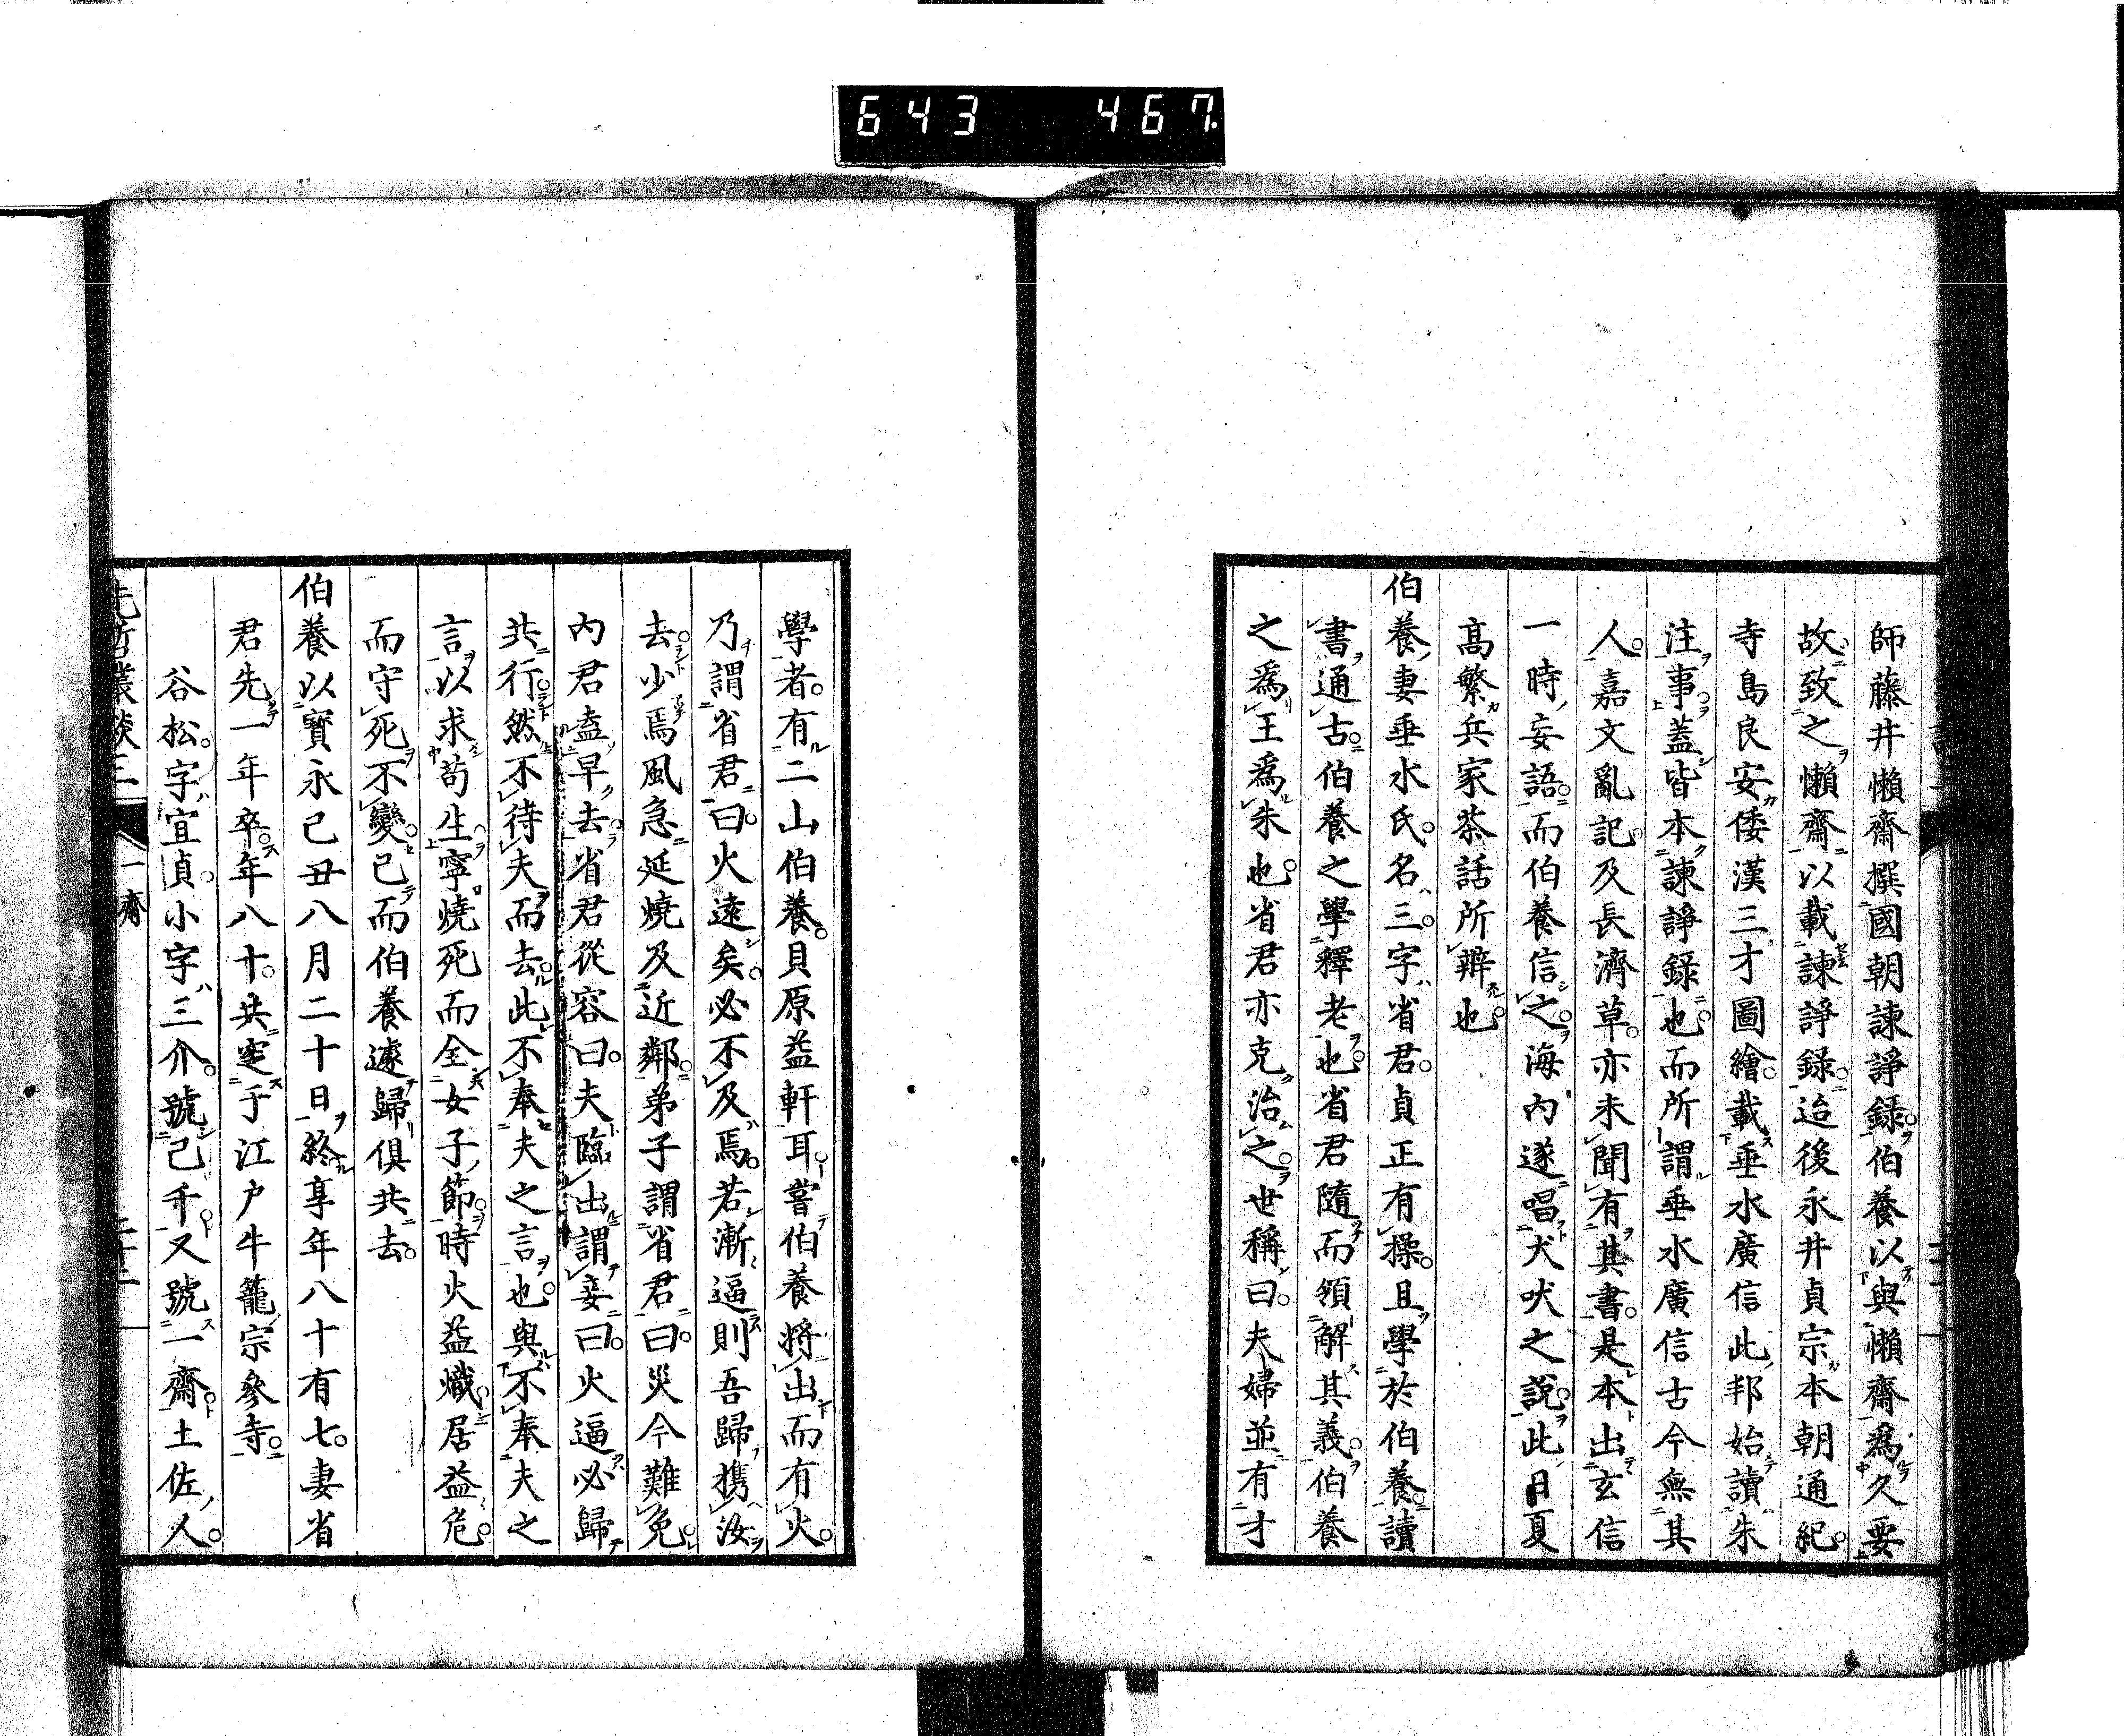 643 467
師藤井懶齋撰國朝諫諍録伯養以與懶齋爲久要
故致之懶齋以載諫諍録迨後永井貞宗本朝通紀
寺島良安倭漢三才圖繪載垂水廣信此邦始讀朱
注事蓋皆本諫諍録也而所謂垂水廣信古今無其
人嘉文亂記及長濟草亦未聞有其書是本出玄信
一時妄語而伯養信之海内遂唱犬吠之說此日夏
高繁兵家茶話所辨也
伯養妻垂水氏名三字省君貞正有操且學於伯養讀
書通古伯養之學釋老也省君隨而領解其義伯養
之爲王爲朱也省君亦克治之世稱曰夫婦並有才
學者有二山伯養貝原益軒耳嘗伯養將出而有火
乃謂省君曰火遠矣必不及焉若漸逼則吾歸携汝
去少焉風急延燒及近鄰弟子謂省君曰災今難免
内君盍早去省君從容曰夫臨出謂妾曰火逼必歸
共行然不待夫而去此不奉夫之言也與不奉夫之
言以求苟生寧燒死而全女子節時火益熾居益危
而守死不變已而伯養遽歸俱共去
伯養以寶永己丑八月二十日終享年八十有七妻省
君先一年卒年八十共窆于江户牛籠宗參寺
谷松字宜貞小字三介號己千又號一齋土佐人
先哲叢談三 一齋 二十二